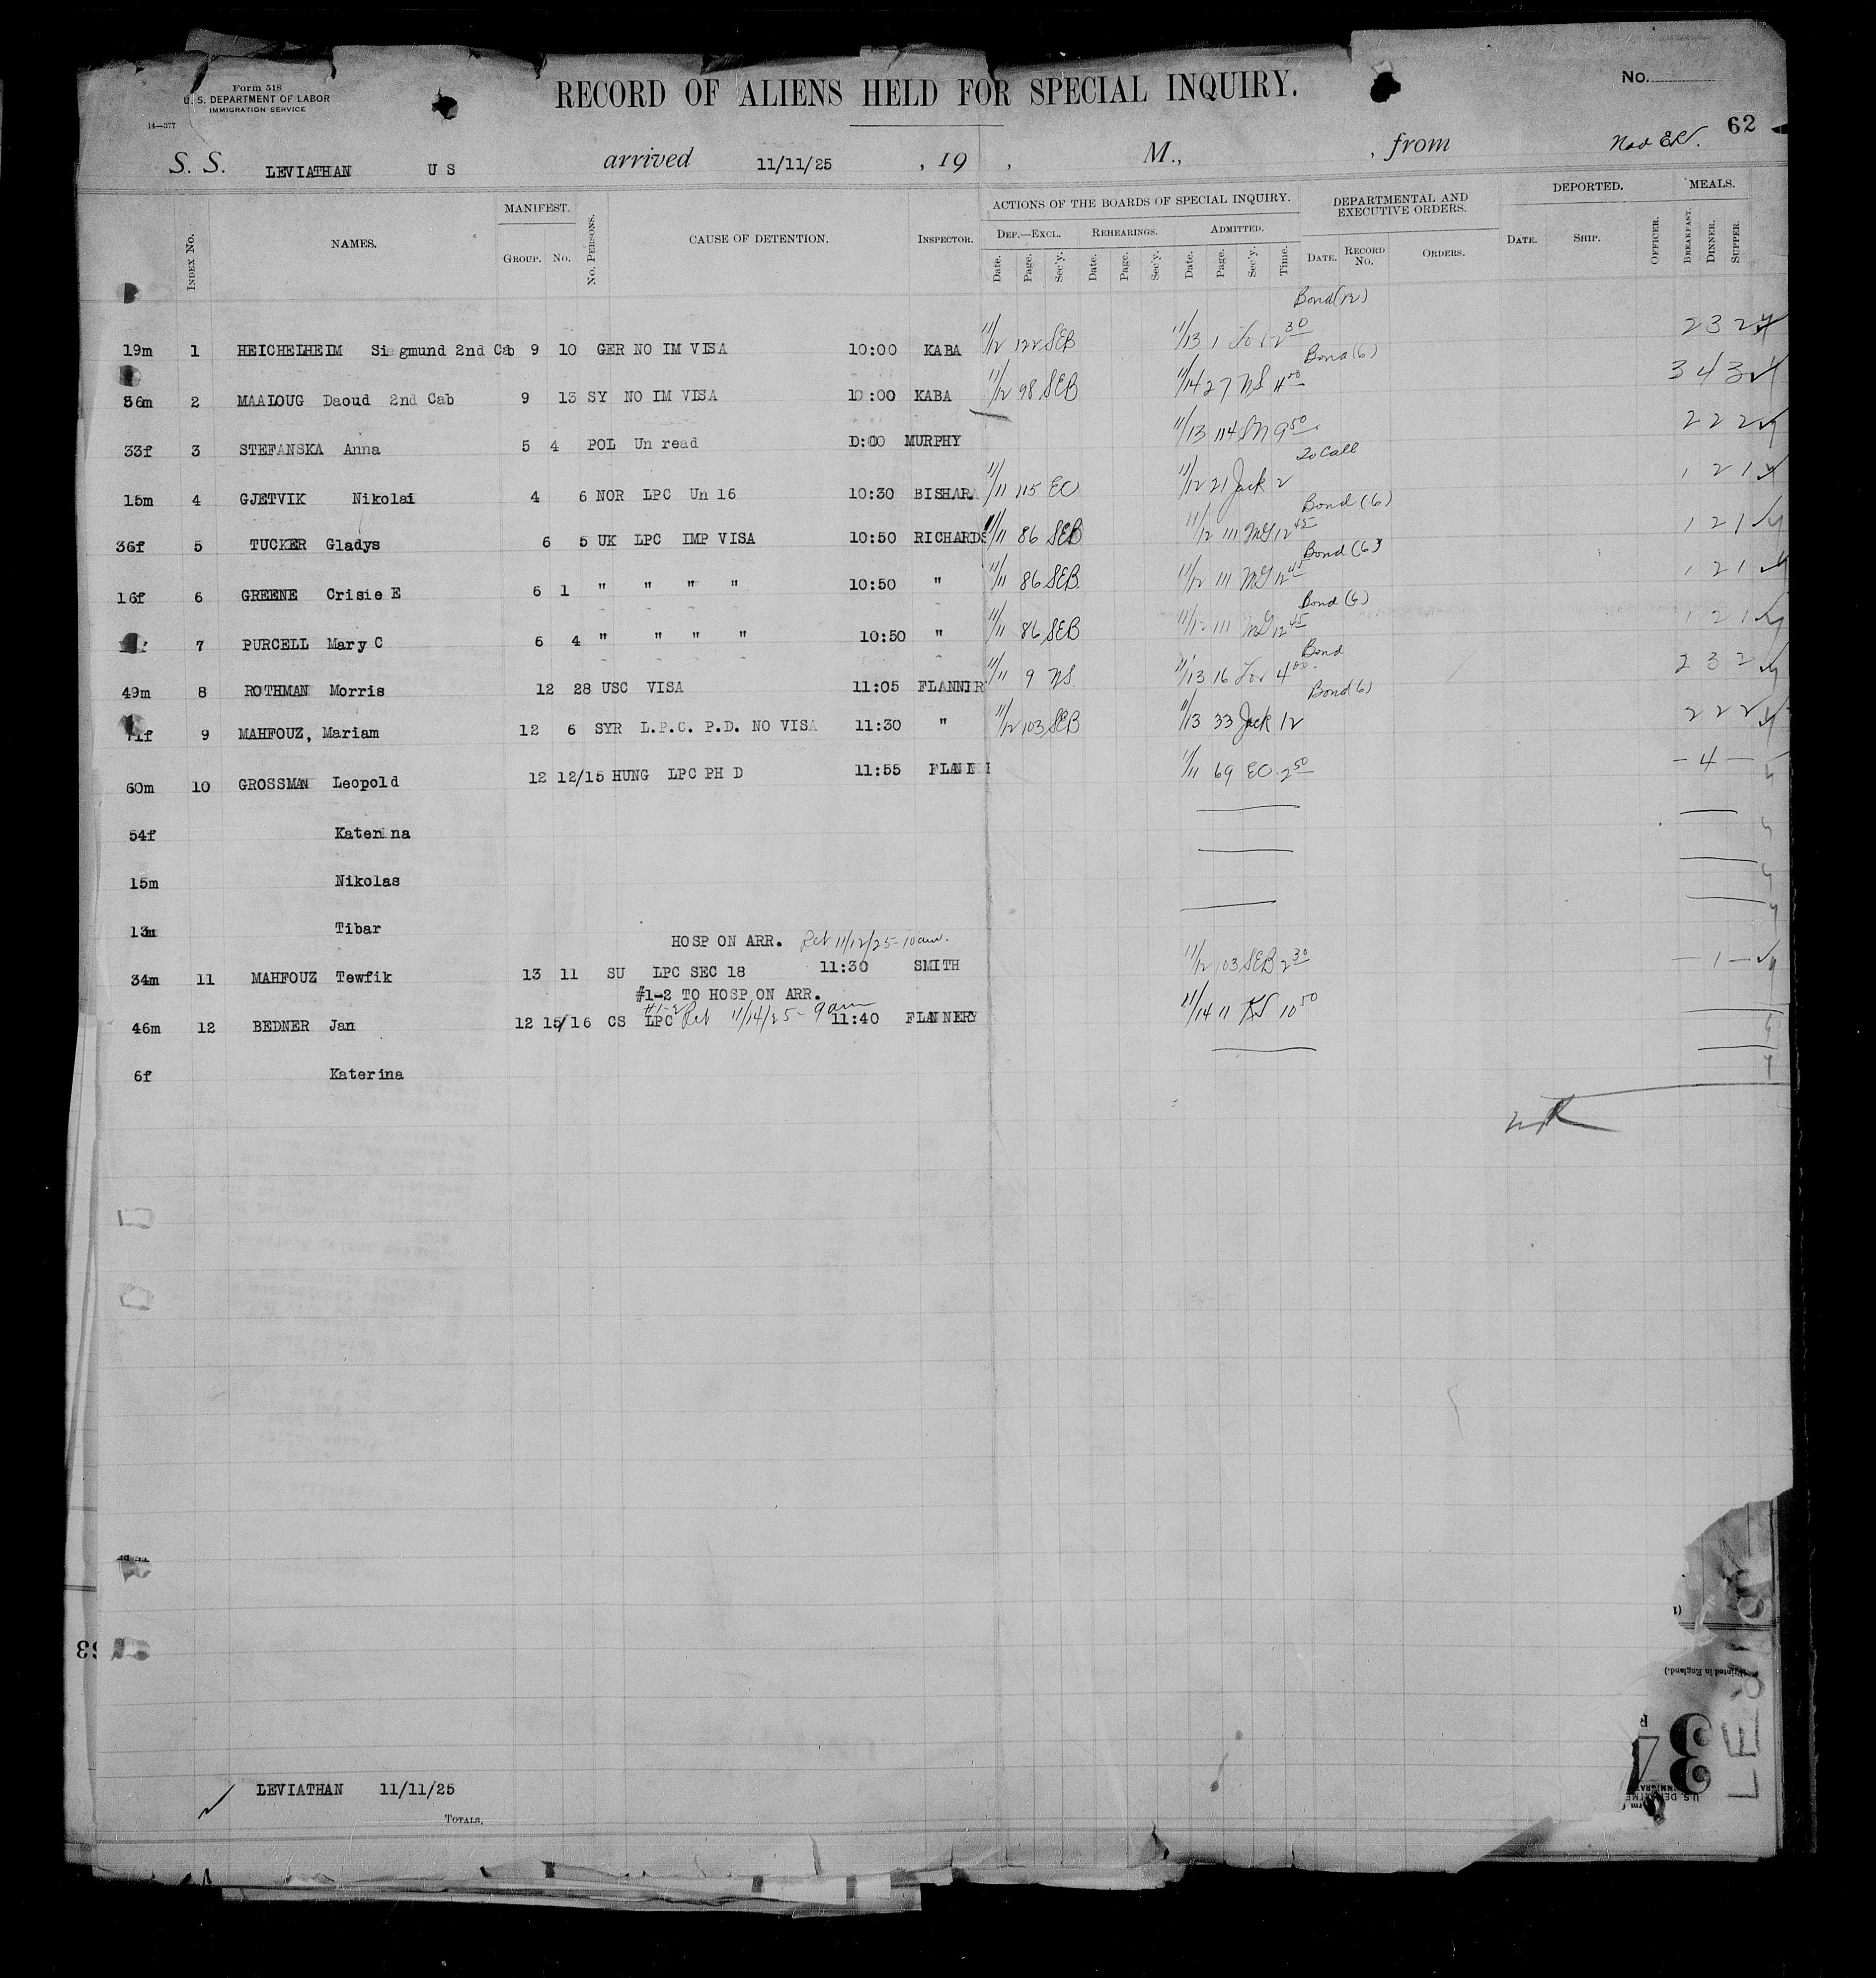 Form 518
U. S. DEPARTMENT OF LABOR
IMMIGRATION SERVICE
14—377
RECORD OF ALIENS HELD FOR SPECIAL INQUIRY.
No.
62
S. S. LEVIATHAN U S arrived 11/11/25 , 19 , M., , from
INDEX No. NAMES. MANIFEST. GROUP. No. No. PERSONS. CAUSE OF DETENTION. INSPECTOR. ACTIONS OF THE BOARDS OF SPECIAL INQUIRY. DEF.—EXCL. Date. Page. Sec'y. REHEARINGS. Date. Page. Sec'y. ADMITTED. Date. Page. Sec'y. Time. DEPARTMENTAL AND EXECUTIVE ORDERS. DATE. RECORD No. ORDERS. DEPORTED. DATE. SHIP. OFFICER. MEALS. BREAKFAST. DINNER. SUPPER.
Bond (12)
19m 1 HEICHELHEIM Siegmund 2nd Cab 9 10 GER NO IM VISA 10:00 KABA 11/12 122 SEB 11/13 1 Lor 2 30 2 3 2
Bond (6)
56m 2 MAALOUG Daoud 2nd Cab 9 13 SY NO IM VISA 10:00 KABA 11/12 98 SEB 11/14 27 NS 4 00 3 4 3
33f 3 STEFANSKA Anna 5 4 POL Un read 0:00 MURPHY 11/13 114 SN 9 50 2 2 2
To Call
15m 4 GJETVIK Nikolai 4 6 NOR LPC Un 16 10:30 BISHARA 11/11 115 EO 11/12 21 Jack 2 1 2 1
Bond (6)
36f 5 TUCKER Gladys 6 5 UK LPC IMP VISA 10:50 RICHARDS 11/11 86 SEB 11/12 111 McG 12 45 1 2 1
Bond (6)
16f 6 GREENE Crisie E 6 1 " " " " 10:50 " 11/11 86 SEB 11/12 111 McG 12 45 1 2 1
Bond (6)
7 PURCELL Mary C 6 4 " " " " 10:50 " 11/11 86 SEB 11/12 111 McG 12 45 1 2 1
Bond
49m 8 ROTHMAN Morris 12 28 USC VISA 11:05 FLANNER 11/11 9 NS 11/13 16 Lor 4 00 2 3 2
Bond (6)
9 MAHFOUZ, Mariam 12 6 SYR L.P.C. P.D. NO VISA 11:30 " 11/12 103 SEB 11/13 33 Jack 12 2 2 2
60m 10 GROSSMAN Leopold 12 12/15 HUNG LPC PH D 11:55 11/11 69 EO 2 50 — 4 —
54f Katerina
15m Nikolas
13m Tibar
HOSP ON ARR. Ret 11/12/25 - 10 am.
34m 11 MAHFOUZ Tewfik 13 11 SU LPC SEC 18 11:30 SMITH 11/12 103 SEB 2 30 — 1 —
#1-2 TO HOSP ON ARR.
#1-2 Ret 11/14/25 - 9 am
46m 12 BEDNER Jan 12 15/16 CS LPC 11:40 FLANNERY 11/14 11 KS 10 50
6f Katerina
LEVIATHAN 11/11/25
TOTALS,